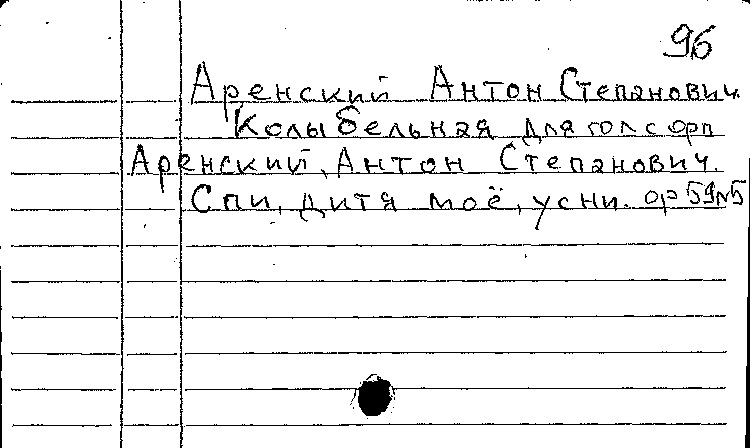 96
Аренский Антон Степанович.
Колыбельная для гол с орп
Аренский, Антон Степанович.
Спи, дитя моё, усни. ор 59 №5